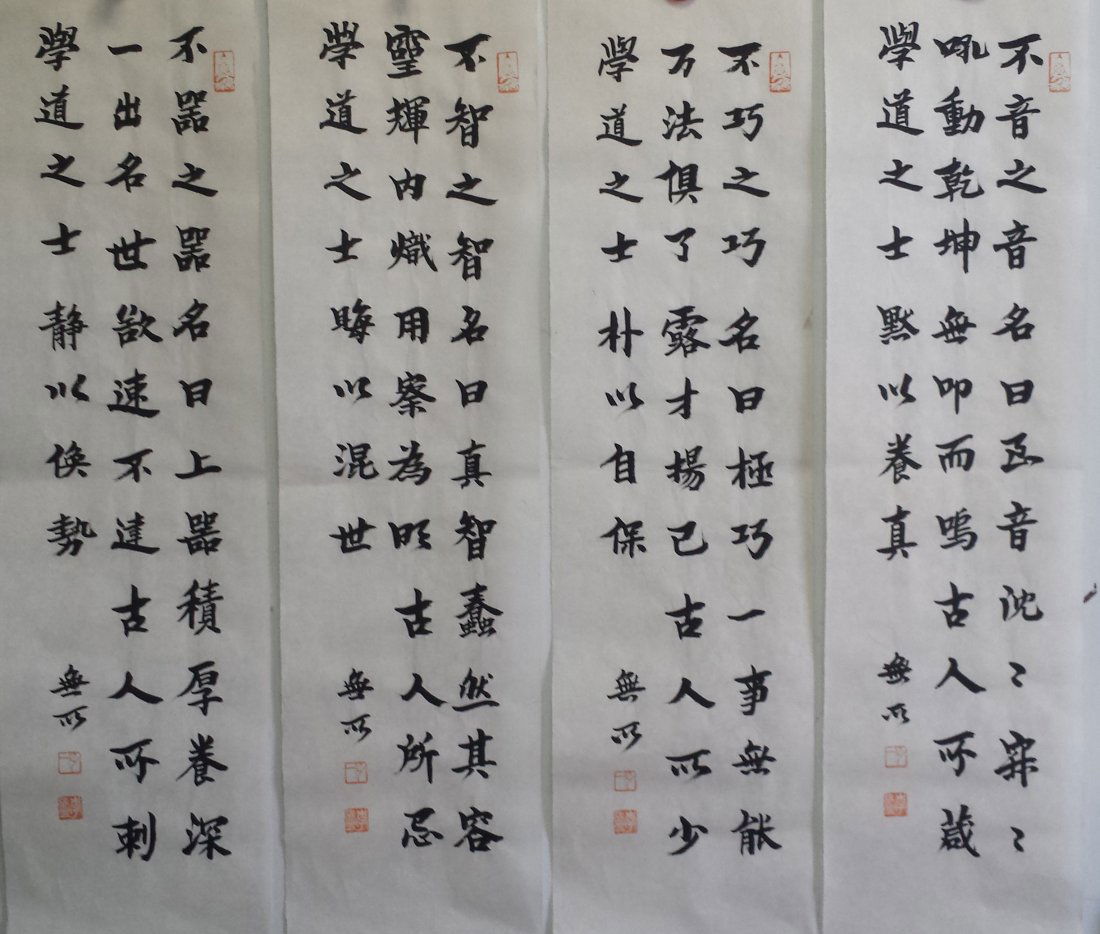 不音之音名曰至音沈〻寂〻
吼動乾坤無叩而鳴古人所箴
學道之士默以養真
無所
不巧之巧名曰極巧一事無能
万法俱了露才揚己古人所少
學道之士朴以自保
無所
不智之智名曰真智蠢然其容
靈輝内熾用察為明古人所忌
學道之士晦以混世
無所
不器之器名曰上器積厚養深
一出名世欲速不達古人所刺
學道之士静以俟勢
無所